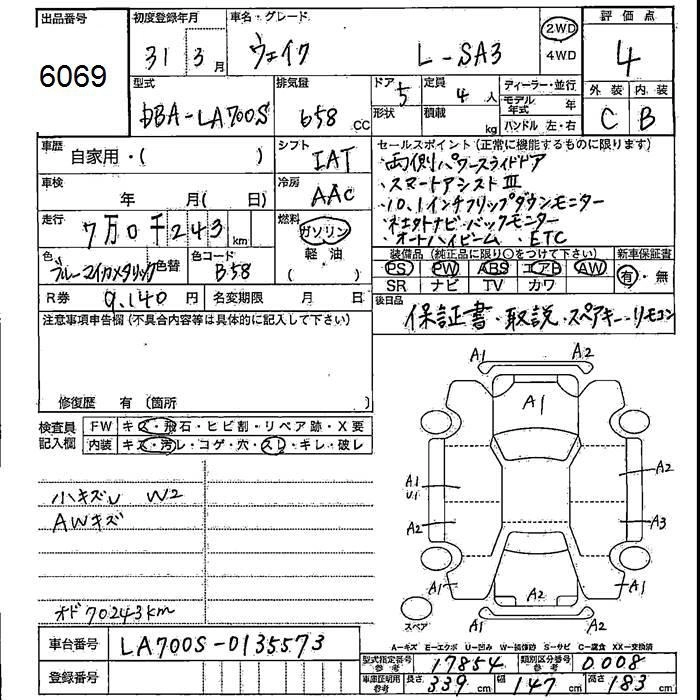 出品番号
6069
初度登録年月
31 3月
車名・グレード
ウェイク L-SA3
2WD
4WD
評価点
4
型式
DBA-LA700S
排気量
658 CC
ドア 5
形状
定員 4 人
積載 kg
ディーラー・並行
モデル年式 年
ハンドル 左・右
外装 内装
C B
車歴
自家用・( )
シフト
IAT
セールスポイント(正常に機能するものに限ります)
・両側パワースライドドア
・スマートアシストⅢ
・10.1インチフリップダウンモニター
・ナビ・バックモニター
・オートハイビーム ・ETC
車検
年 月( 日)
冷房
AAC
走行
7万0千243km
燃料
ガソリン
軽油
( )
装備品(純正品に限り○をつけて下さい)
PS PW ABS エアB AW
SR ナビ TV カワ
新車保証書
有・無
色
ブルーマイカメタリック
色替
色コード
B58
R券 9,140 円
名変期限 月 日
後日品
保証書・取説・スペアキー・リモコン
注意事項申告欄(不具合内容等は具体的に記入して下さい)
修復歴 有(箇所 )
検査員記入欄
FW キズ・飛石・ヒビ割・リペア跡・X要
内装 キズ・汚レ・コゲ・穴・スレ・キレ・破レ
小キズU W2
AWキズ
オド70243km
A1 A2
A1
A1
U1
A2
A2
A3
A1 A2 A1
A1 A2
スペア
A-キズ E-エクボ U-凹み W-補修跡 S-サビ C-腐食 XX-交換済
車台番号
LA700S-0135573
登録番号
型式指定番号参考 17854
類別区分番号参考 0008
車庫証明用参考 長さ 339 cm 幅 147 cm 高さ 183 cm